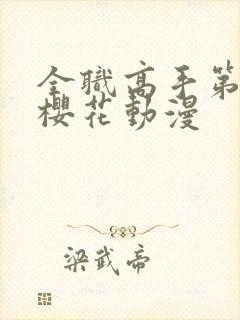 全職高手第
櫻花動漫
梁武帝